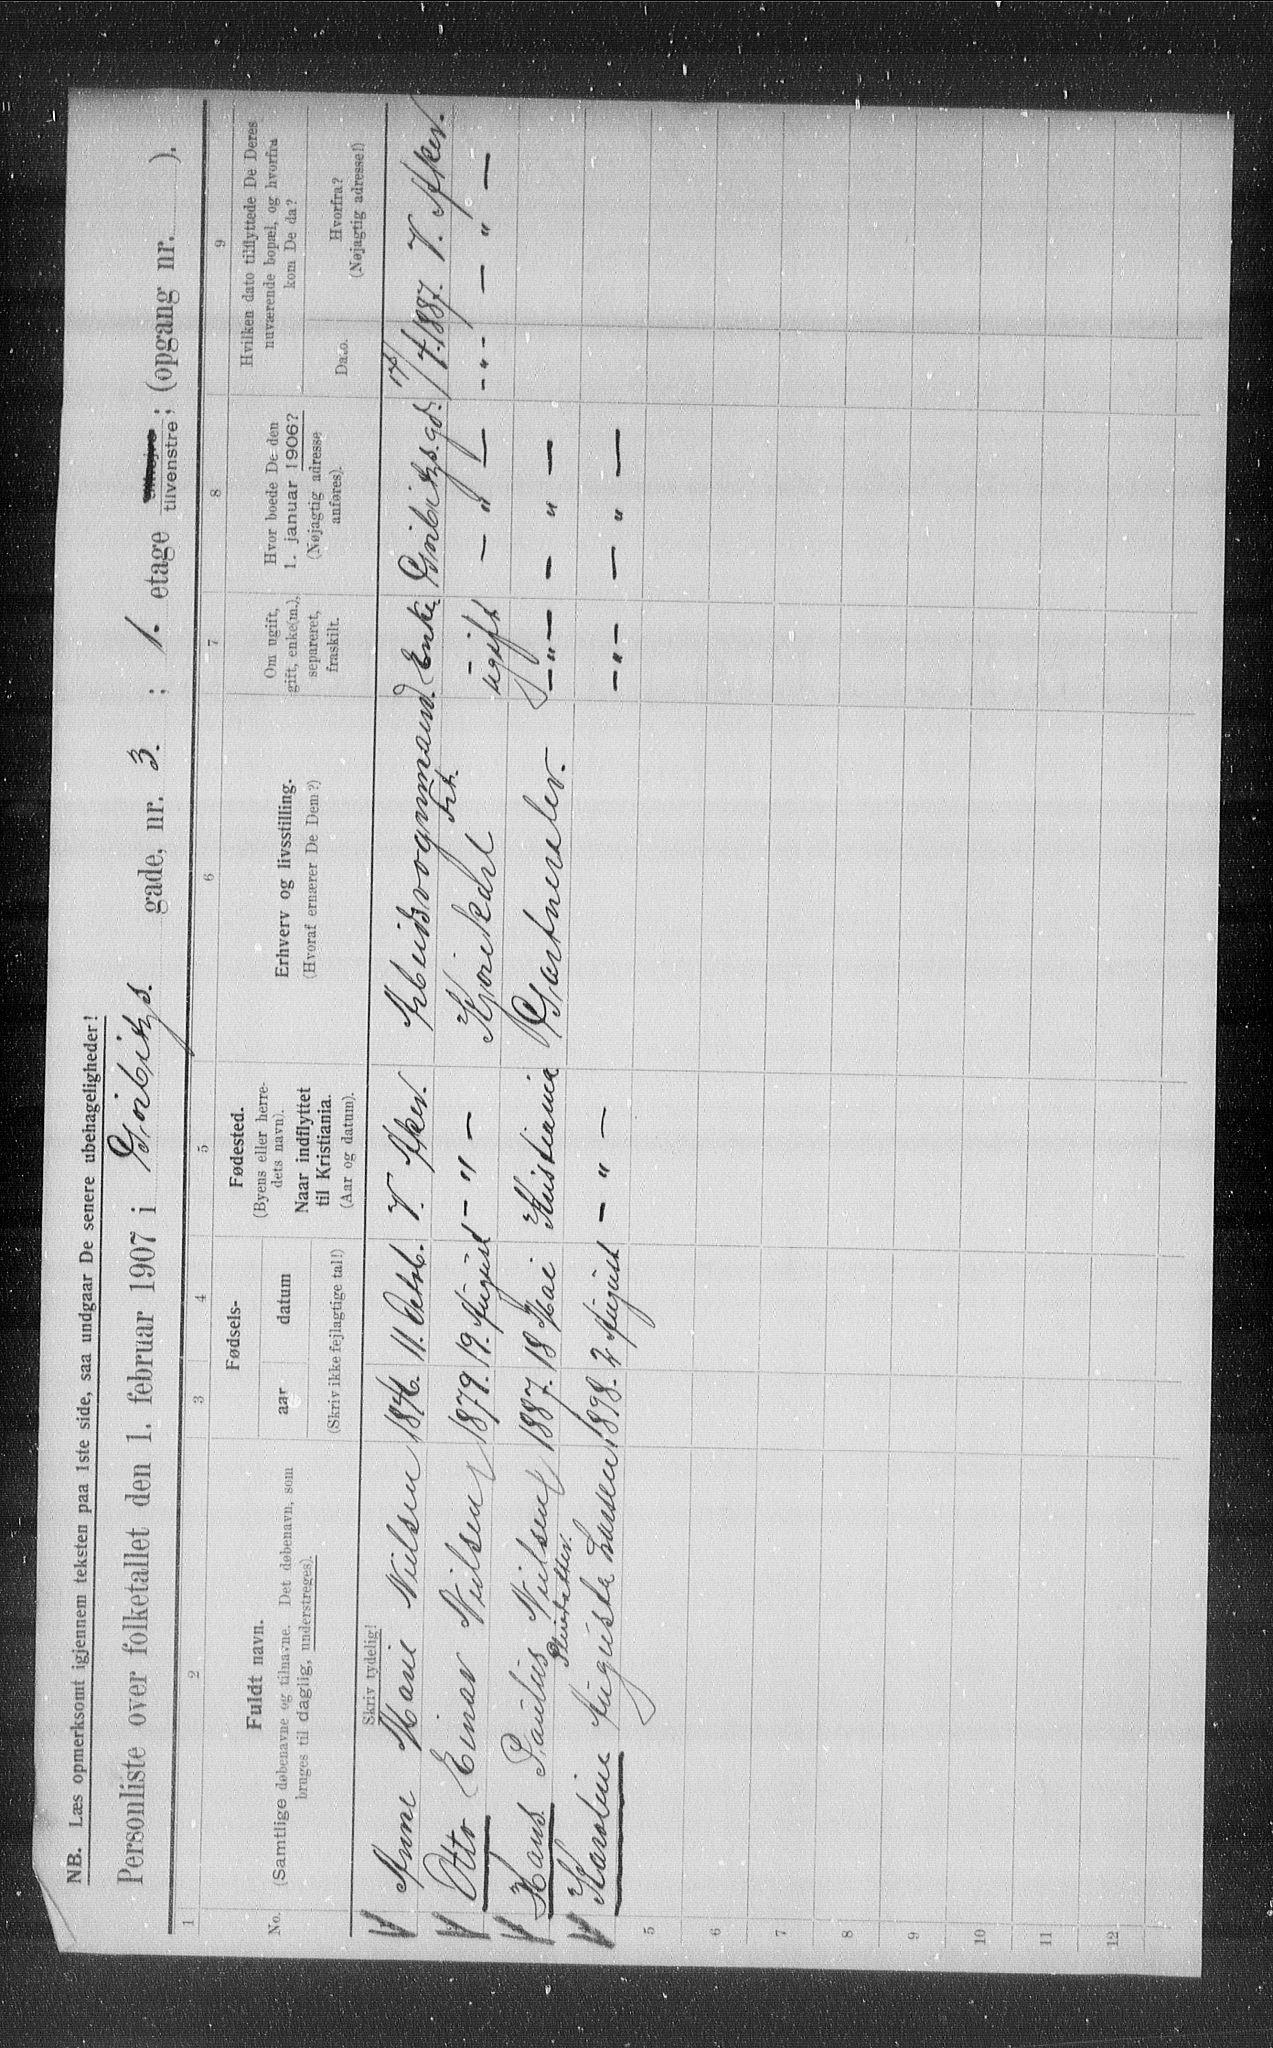 NB. Læs opmerksomt igjennem teksten paa 1ste side, saa undgaar De senere ubehageligheder!
Personliste over folketallet den 1. februar 1907 i Gørbitz's. gade, nr. 3. ; 1. etage tilvenstre; (opgang nr. ).
1 2 3 4 5 6 7 8 9
No.
Fuldt navn.
(Samtlige døbenavne og tilnavne. Det døbenavn, som
bruges til daglig, understreges).
Fødsels-
aar datum
(Skriv ikke fejlagtige tal!)
Fødested.
(Byens eller herre-
dets navn).
Naar indflyttet
til Kristiania.
(Aar og datum).
Erhverv og livsstilling.
(Hvoraf ernærer De Dem?)
Om ugift,
gift, enke(m.),
separeret,
fraskilt.
Hvor boede De den
1. januar 1906?
(Nøjagtig adresse
anføres).
Hvilken dato tilflyttede De Deres
nuværende bopæl, og hvorfra
kom De da?
Dato.
Hvorfra?
(Nøjagtig adresse!)
Skriv tydelig!
Anne Marie Nielsen 11. Octob. V. Aker. Arbeidsvognmand Enke Gørbitzs.gd. 17/4.1887. V. Aker.
Otto Einar Nielsen 1879. 19. August - " - Kjørekarl ugift - " - - " - - " -
Hans Paulus Nielsen 1887. 18 Mai Kristiania Gartnerelev. - " - - " -
Karoline Augusta Larsen 1898. 2 August - " - - " - - " -
5
6
7
8
9
10
11
12